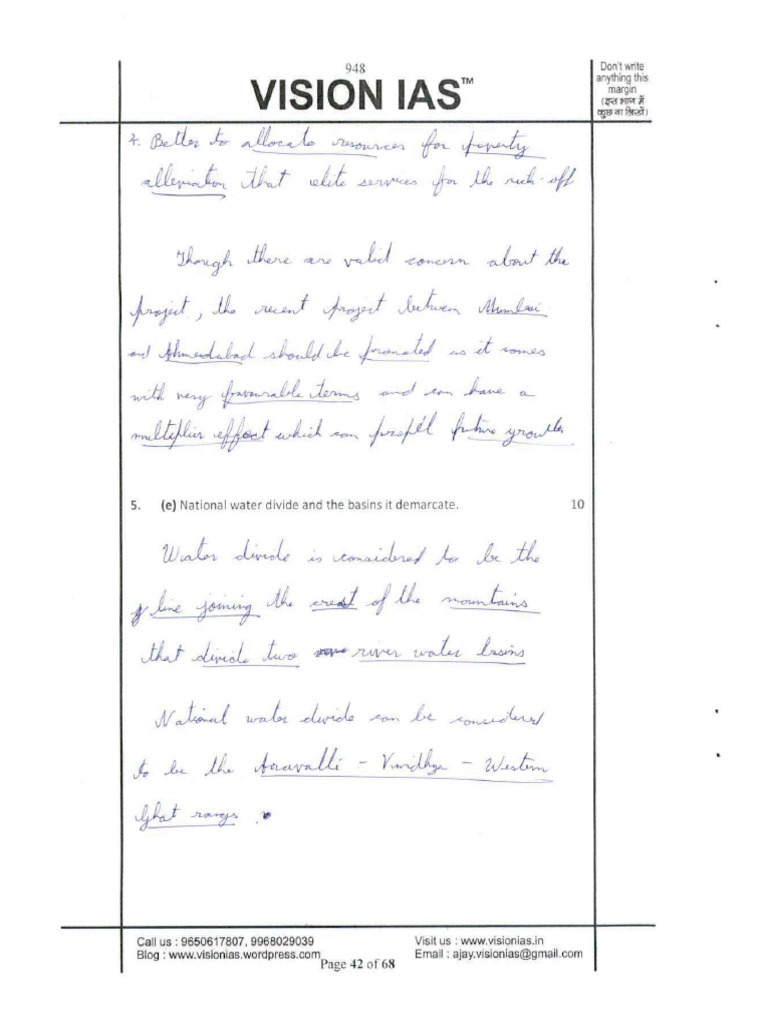 948
VISION IAS™
Don't write
anything this
margin
(इस भाग में
कुछ ना लिखें)
4. Better to allocate resources for poverty
alleviation that elite services for the rich-off
Though there are valid concern about the
project, the recent project between Mumbai
and Ahmedabad should be promoted as it comes
with very favourable terms and can have a
multiplier effect which can propel future growth
5. (e) National water divide and the basins it demarcate. 10
Water divide is considered to be the
line joining the crest of the mountains
that divide two river water basins
National water divide can be considered
to be the Aravalli - Vindhya - Western
Ghat range.
Call us : 9650617807, 9968029039
Visit us : www.visionias.in
Blog : www.visionias.wordpress.com
Email : ajay.visionias@gmail.com
Page 42 of 68